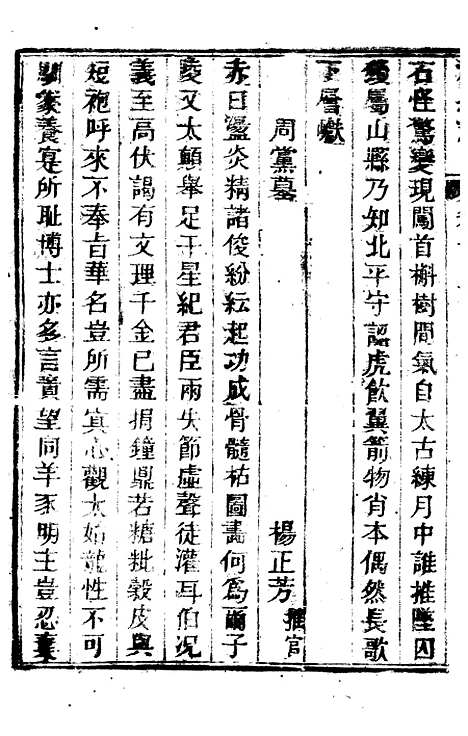 石怪驚變現闖首槲樹間氣自太古練月中誰推墜囚
屬山縣乃知北平守認虎飲翼箭物肖本偶然長歌
下層巘
周黨墓 楊正芳推官
赤日盪炎精諸俊紛紜起功成骨髓祜圖畫何為爾子
陵又太顛舉足干星紀君臣兩失節虛聲徒灌耳伯況
義至高伏謁有文理千金已盡捐鐘鼎若糖粃穀皮與
短袍呼來不奉旨華名豈所需寘心觀太始龍性不可
馴豢養寔所耻博士亦多言責望同羊豕明主豈忍棄